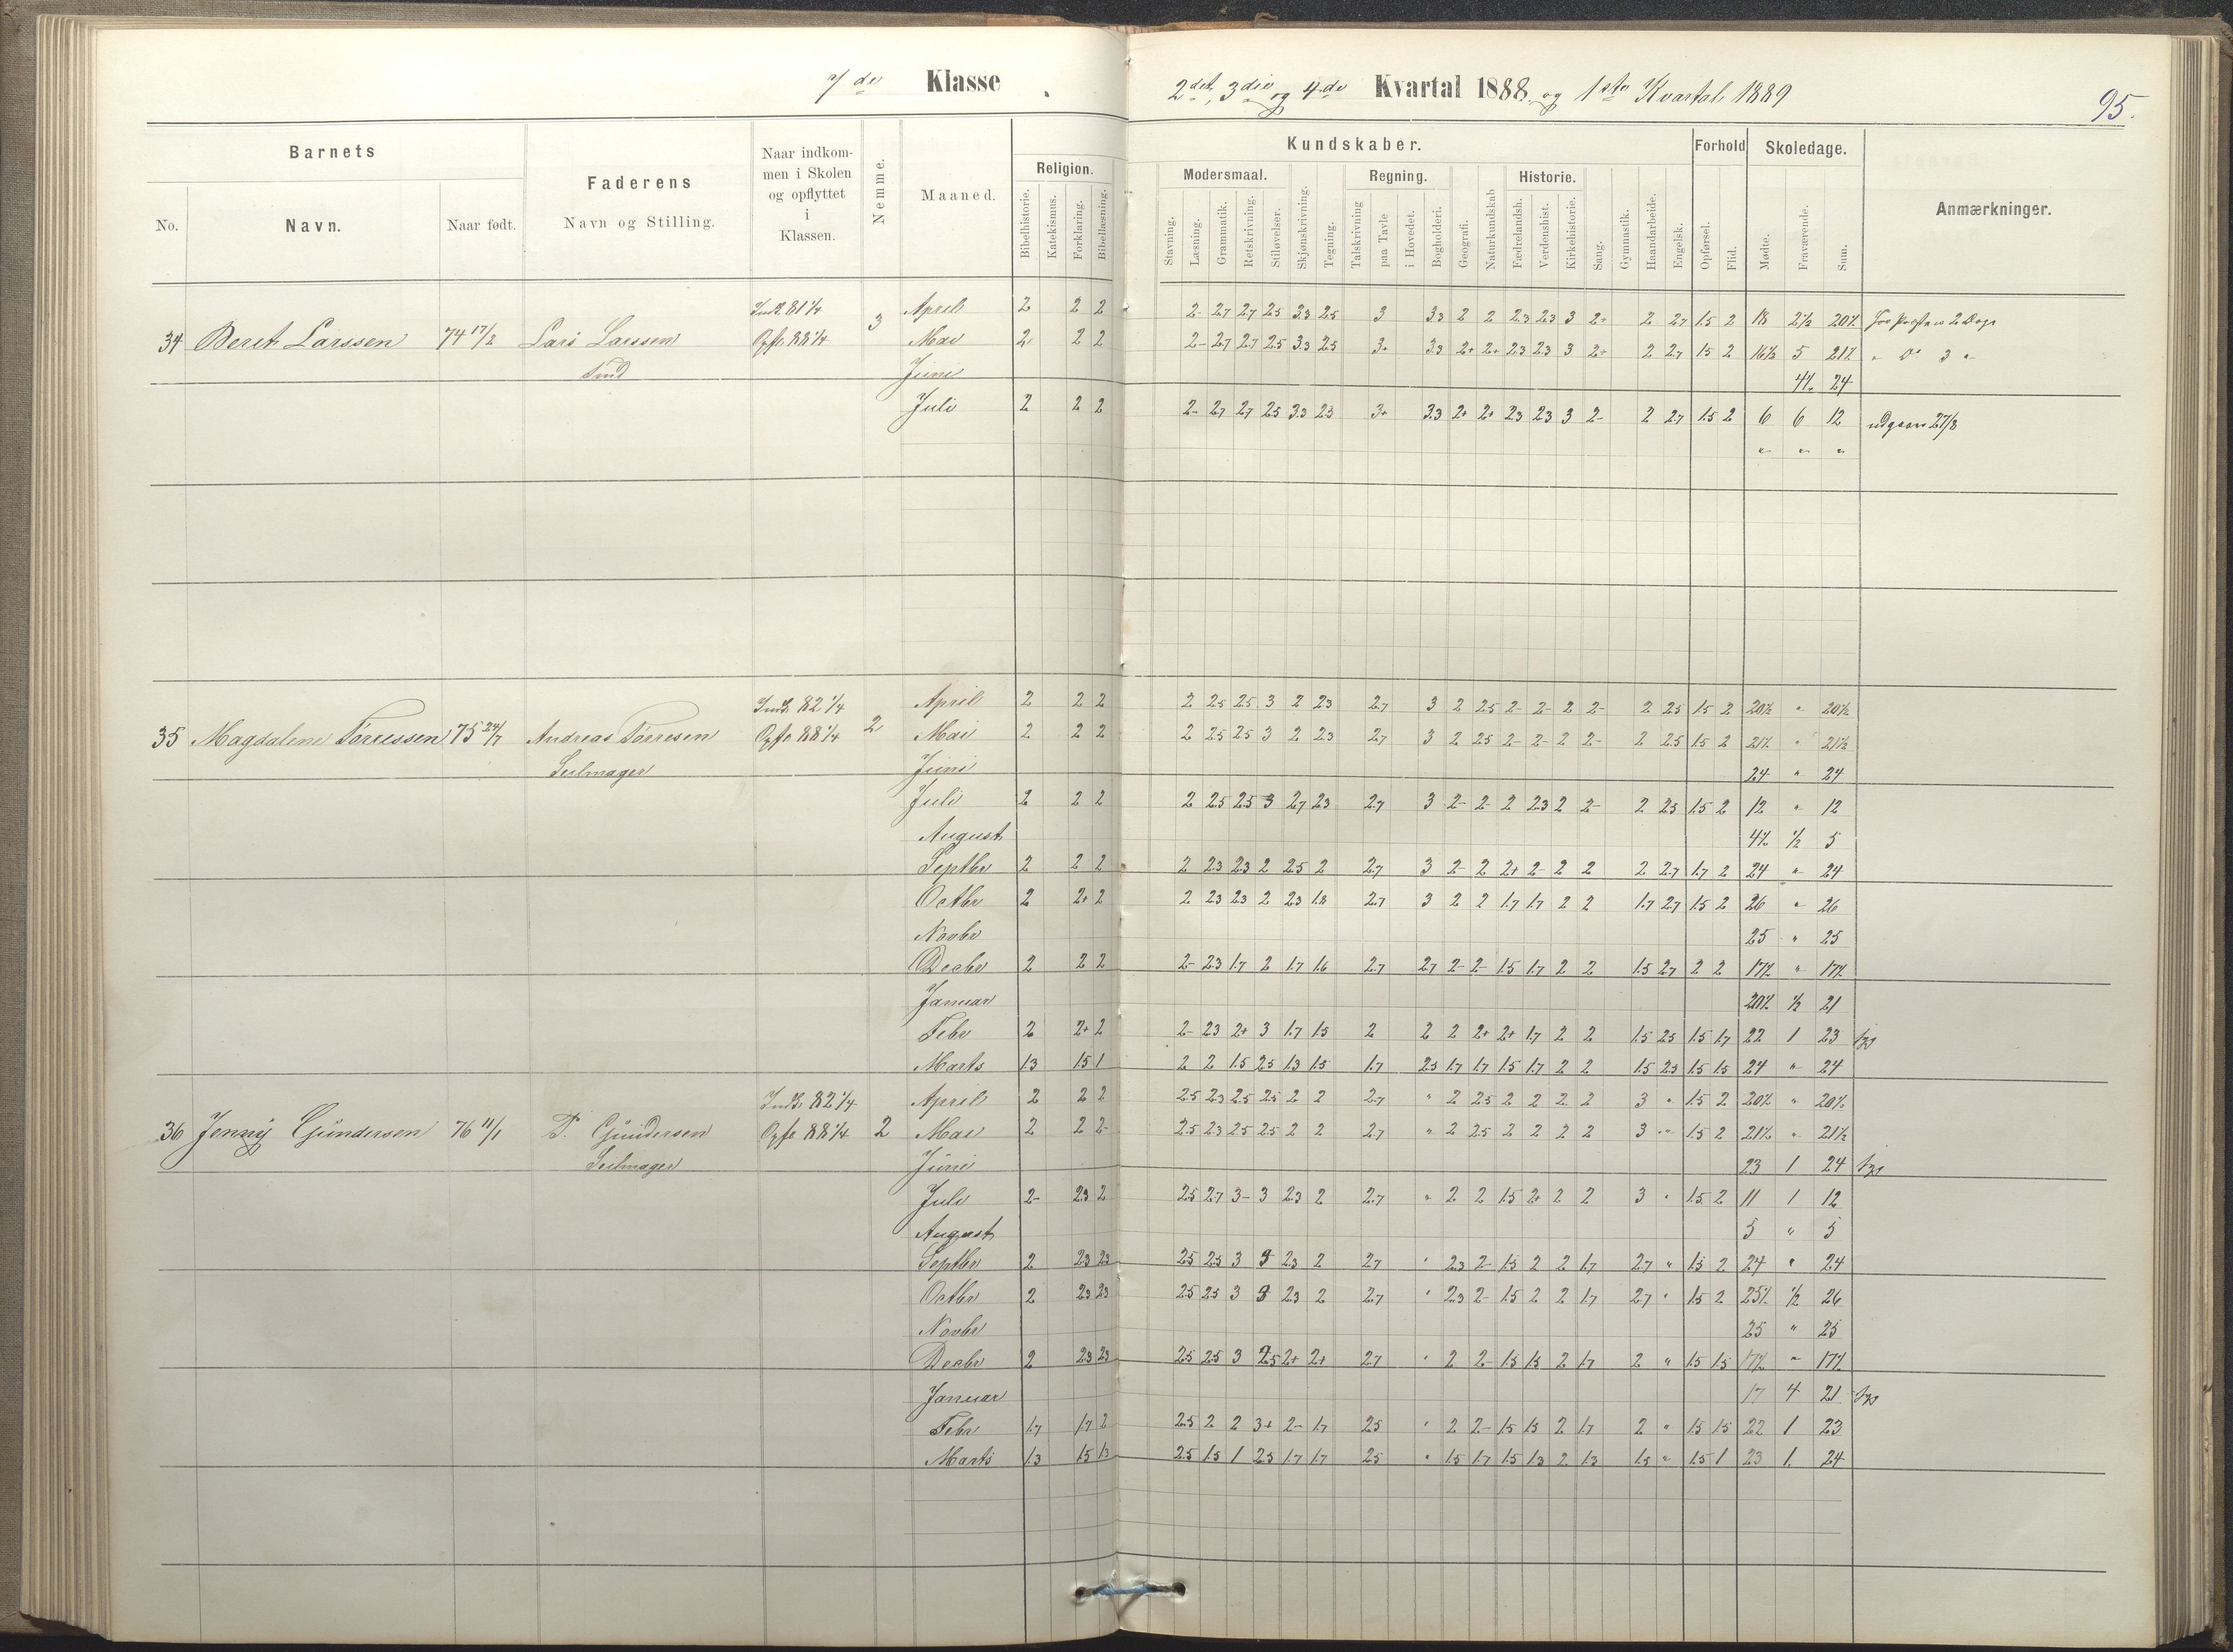 7de Klasse.
2det, 3die og 4de Kvartal 1888 og 1ste Kvartal 1889
95.
Barnets
No.
Navn.
Naar født.
Faderens
Navn og Stilling.
Naar indkom-
men i Skolen
og opflyttet
i
Klassen.
Nemme.
Maaned.
Religion.
Bibelhistorie.
Katekismus.
Forklaring.
Bibellæsning.
Kundskaber.
Modersmaal.
Stavning.
Læsning.
Grammatik.
Retskrivning.
Stiløvelser.
Skjønskrivning.
Tegning.
Regning.
Talskrivning
paa Tavle
i Hovedet.
Bogholderi.
Geografi.
Naturkundskab
Historie.
Fædrelandsh.
Verdenshist.
Kirkehistorie.
Sang.
Gymnastik.
Haandarbeide.
Engelsk.
Forhold
Opførsel.
Flid.
Skoledage.
Mødte.
Fraværende.
Sum.
Anmærkninger.
Indk. 81 1/4 April 2 2 2 2- 2.7 2.7 2.5 3.3 2.5 3 3.3 2 2 2.3 2.3 3 2+ 2 2.7 1.5 2 18 2½ 20½
34 Beret Larssen 74 17/2 Lars Larssen Opfl. 88 1/4 3 Mai 2 2 2 2- 2.7 2.7 2.5 3.3 2.5 3+ 3.3 2+ 2+ 2.3 2.3 3 2+ 2 2.7 1.5 2 16½ 5 21½ " Do 3 "
Juni 4½ 24
Juli 2 2 2 2- 2.7 2.7 2.5 3.3 2.3 3+ 3.3 2+ 2+ 2.3 2.3 3 2- 2 2.7 1.5 2 6 6 12 udgaaet 27/8
" " "
Indk. 82 1/4 April 2 2 2 2 2.5 2.5 3 2 2.3 2.7 3 2 2.5 2- 2- 2 2- 2 2.5 1.5 2 20½ " 20½
35 Magdalene Torressen 75 24/7 Andreas Torresen Opfl. 88 1/4 2 Mai 2 2 2 2 2.5 2.5 3 2 2.3 2.7 3 2 2.5 2- 2- 2 2- 2 2.5 1.5 2 21½ " 21½
Seilmager Juni 24 " 24
Juli 2 2 2 2 2.5 2.5 3 2.7 2.3 2.7 3 2- 2- 2 2.3 2 2- 2 2.5 1.5 2 12 " 12
August 4½ ½ 5
Septbr 2 2 2 2 2.3 2.3 2 2.5 2 2.7 3 2- 2 2+ 2- 2 2 2 2.7 1.7 2 24 " 24
Octbr 2 2+ 2 2 2.3 2.3 2 2.3 1.8 2.7 3 2 2 1.7 1.7 2 2 1.7 2.7 1.5 2 26 " 26
Novbr 25 " 25
Decbr 2 2 2 2- 2.3 1.7 2 1.7 1.6 2.7 2.7 2- 2- 1.5 1.7 2 2 1.5 2.7 2 2 17½ " 17½
Januar 20½ ½ 21
Febr 2 2+ 2 2- 2.3 2+ 3 1.7 1.5 2 2 2 2+ 2+ 1.7 2 2 1.5 2.5 1.5 1.7 22 1 23
Marts 1.3 1.5 1 2 2 1.5 2.5 1.3 1.5 1.7 2.3 1.7 1.7 1.5 1.7 2 2 1.5 2.3 1.5 1.5 24 " 24
Indk. 82 1/4 April 2 2 2 2.5 2.3 2.5 2.5 2 2 2.7 " 2 2.5 2 2 2 2 3 " 1.5 2 20½ " 20½
36 Jenny Gundersen 76 11/1 Gundersen Opfl. 88 1/4 2 Mai 2 2 2- 2.5 2.3 2.5 2.5 2 2 2.7 " 2 2.5 2 2 2 2 3 " 1.5 2 21½ " 21½
Seilmager Juni 23 1 24
Juli 2- 2.3 2 2.5 2.7 3- 3 2.3 2 2.7 " 2 2 1.5 2+ 2 2 3 " 1.5 2 11 1 12
August 5 " 5
Septbr 2 2.3 2.3 2.5 2.5 3 3 2.3 2 2.7 " 2.3 2- 1.5 2 2 1.7 2.7 " 1.5 2 24 " 24
Octbr 2 2.3 2.3 2.5 2.5 3 3 2.3 2 2.7 " 2.3 2- 1.5 2 2 1.7 2.7 " 1.5 2 25½ ½ 26
Novbr 25 " 25
Decbr 2 2.3 2.3 2.5 2.5 3 2.5 2+ 2+ 2.7 " 2 2- 1.5 1.5 2 1.7 2 " 1.5 1.5 17½ " 17½
Januar 17 4 21
Febr 1.7 1.7 2 2.5 2 2 3+ 2- 1.7 2.5 " 2 2- 1.5 1.5 2 1.7 2 " 1.5 1.5 22 1 23
Marts 1.3 1.5 1.3 2.5 1.5 1 2.5 1.7 1.7 2.5 " 1.5 1.7 1.5 1.3 2 1.3 1.5 " 1.5 1 23 1 24